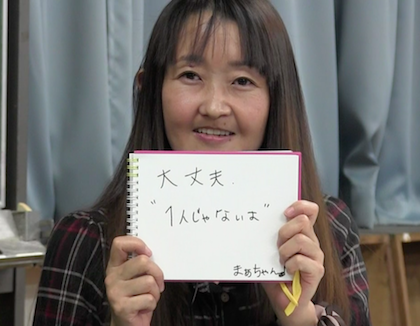 大丈夫.
"1人じゃないよ"
まぁちゃん♪